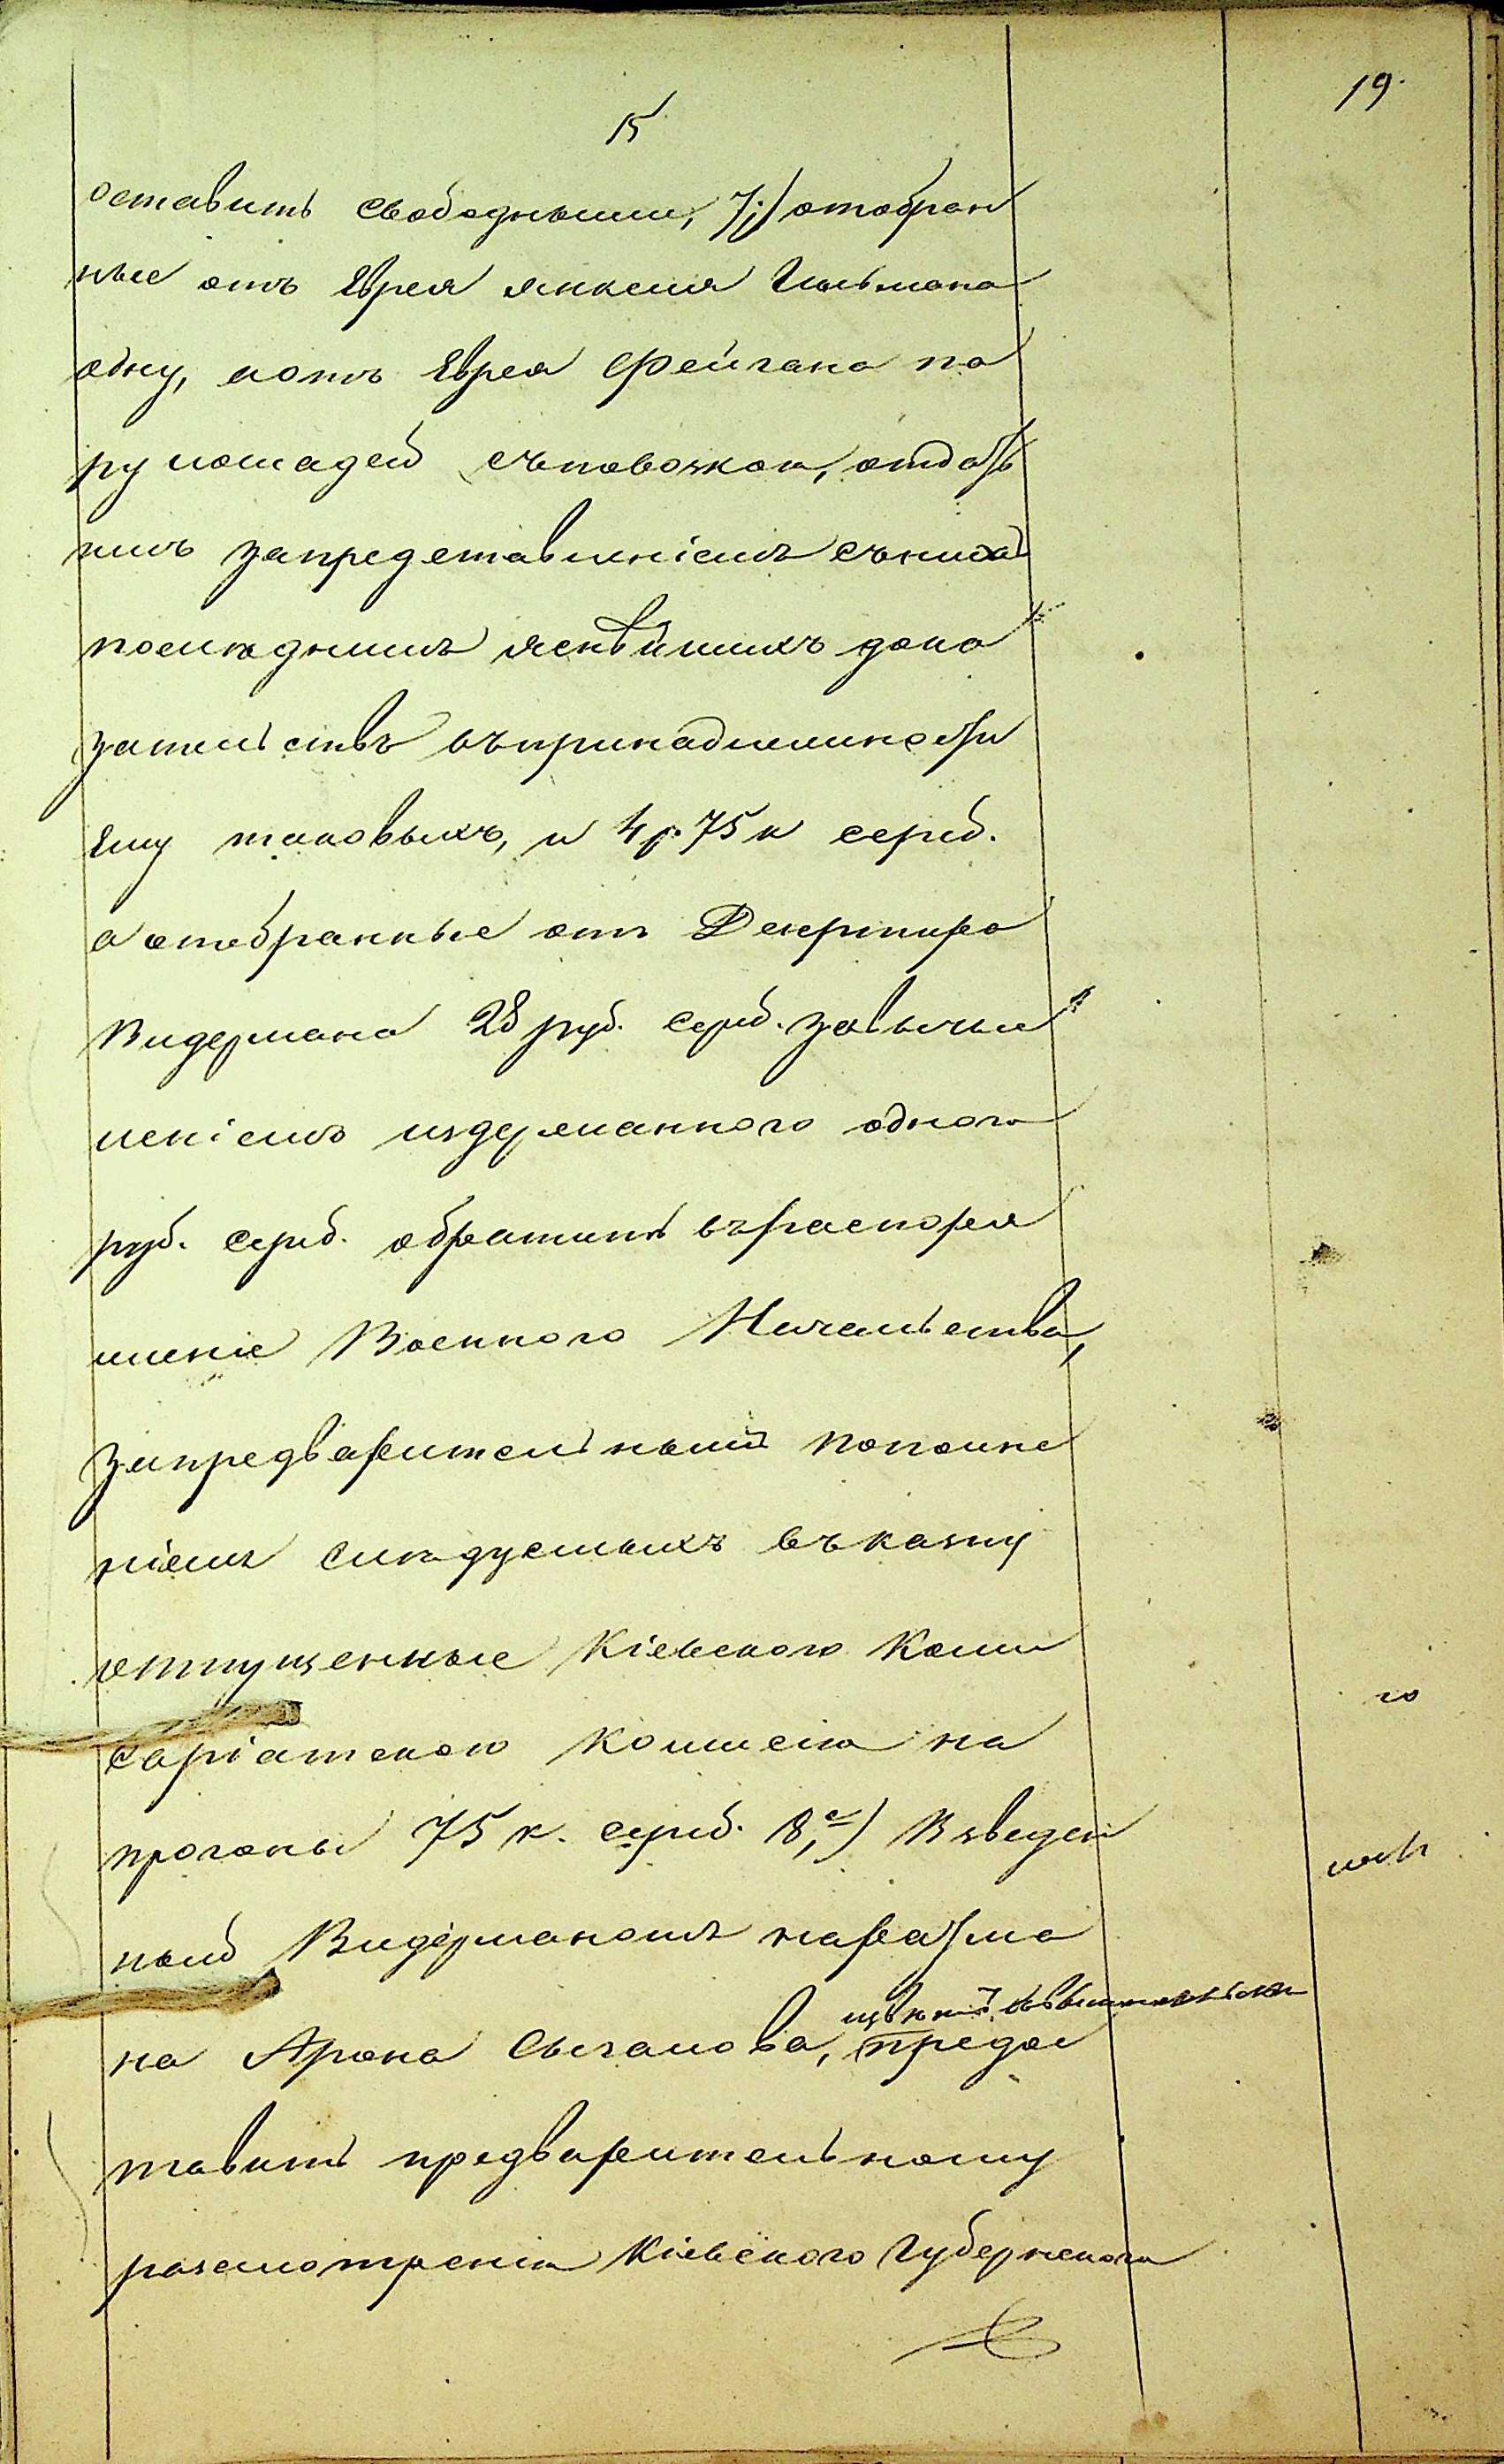 19.
15
оставить свободными, 7,) отобран
ные отъ Еврея Янкеля Гильмана
одну, а отъ Еврея Фейгана па
ру лошадей съ повозкою, отдать
имъ за представленіемъ съ них
последнимъ яснѣйшихъ дока
зательствъ въ принадлежности
ему таковыхъ, и 4 р. 75 к сереб.
а отобранные отъ Дезертира
Видермана 28 руб. сереб. за вычи
неніемъ издержанного одного
руб. сереб. обратить въ распоря
женіе Военного Начальства,
за предварительнымъ пополне
ніемъ следуемыхъ въ казну
отпущенные Кіевскою Коми
саріатскою Комисіею на
прогоны 75 к. сереб. 8,е) Взведен
ный Видерманомъ на разма
на Арона Сыгалова, предос
тавить предварительному
разсмотренію Кіевского Губернского
го